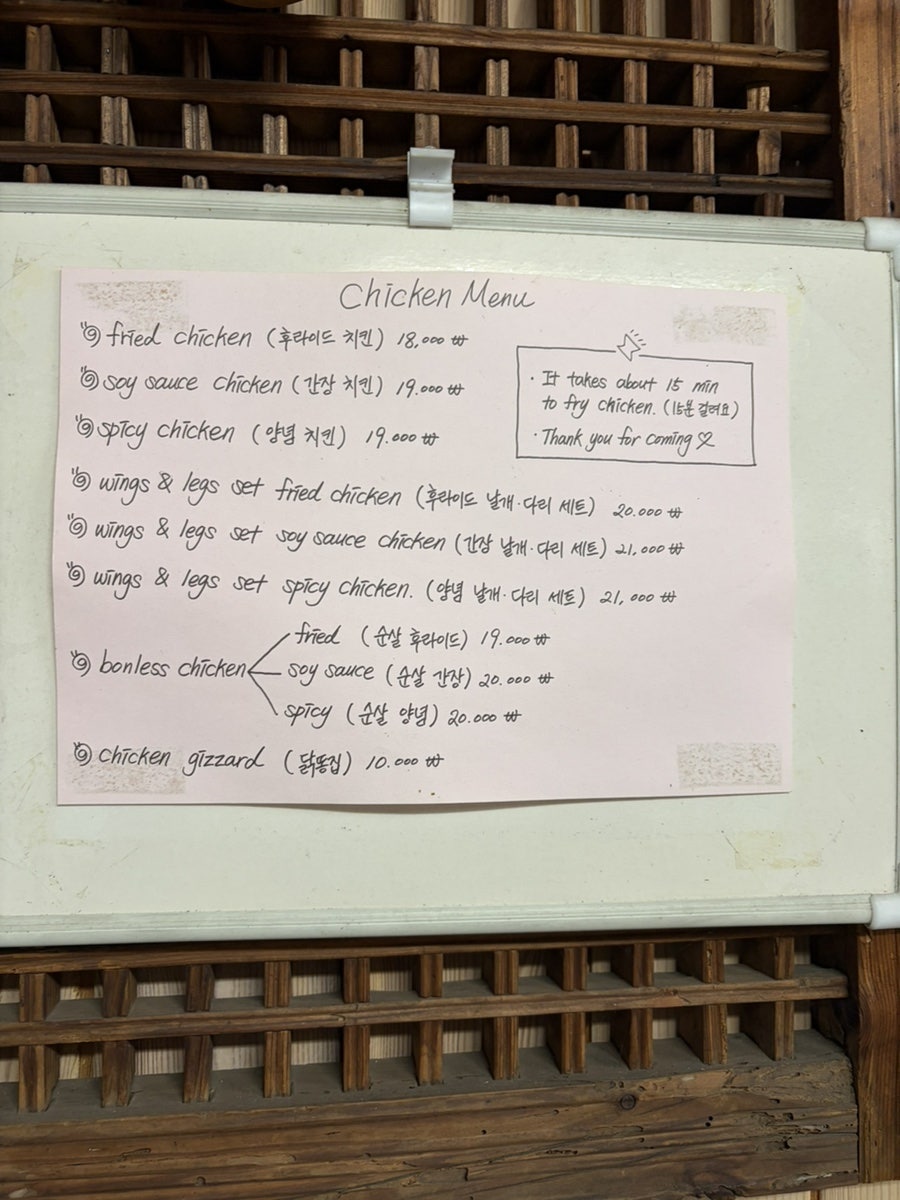 Chicken Menu
fried chicken (후라이드 치킨) 18,000 ₩
soy sauce chicken (간장 치킨) 19.000 ₩
spicy chicken (양념 치킨) 19.000 ₩
· It takes about 15 min
to fry chicken. (15분 걸려요)
· Thank you for coming ♡
wings & legs set fried chicken (후라이드 날개·다리 세트) 20.000 ₩
wings & legs set soy sauce chicken (간장 날개·다리 세트) 21,000 ₩
wings & legs set spicy chicken. (양념 날개·다리 세트) 21,000 ₩
fried (순살 후라이드) 19.000 ₩
bonless chicken soy sauce (순살 간장) 20.000 ₩
spicy (순살 양념) 20.000 ₩
chicken gizzard (닭똥집) 10.000 ₩